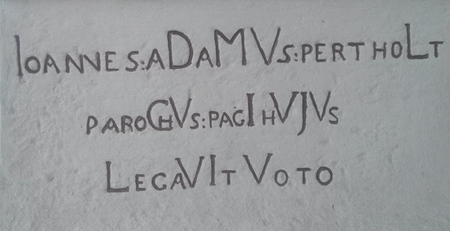 IOANNES:ADAMVS:PERTHOLT
PAROCHVS:PAGI HVJVS
LEGAVIT VOTO